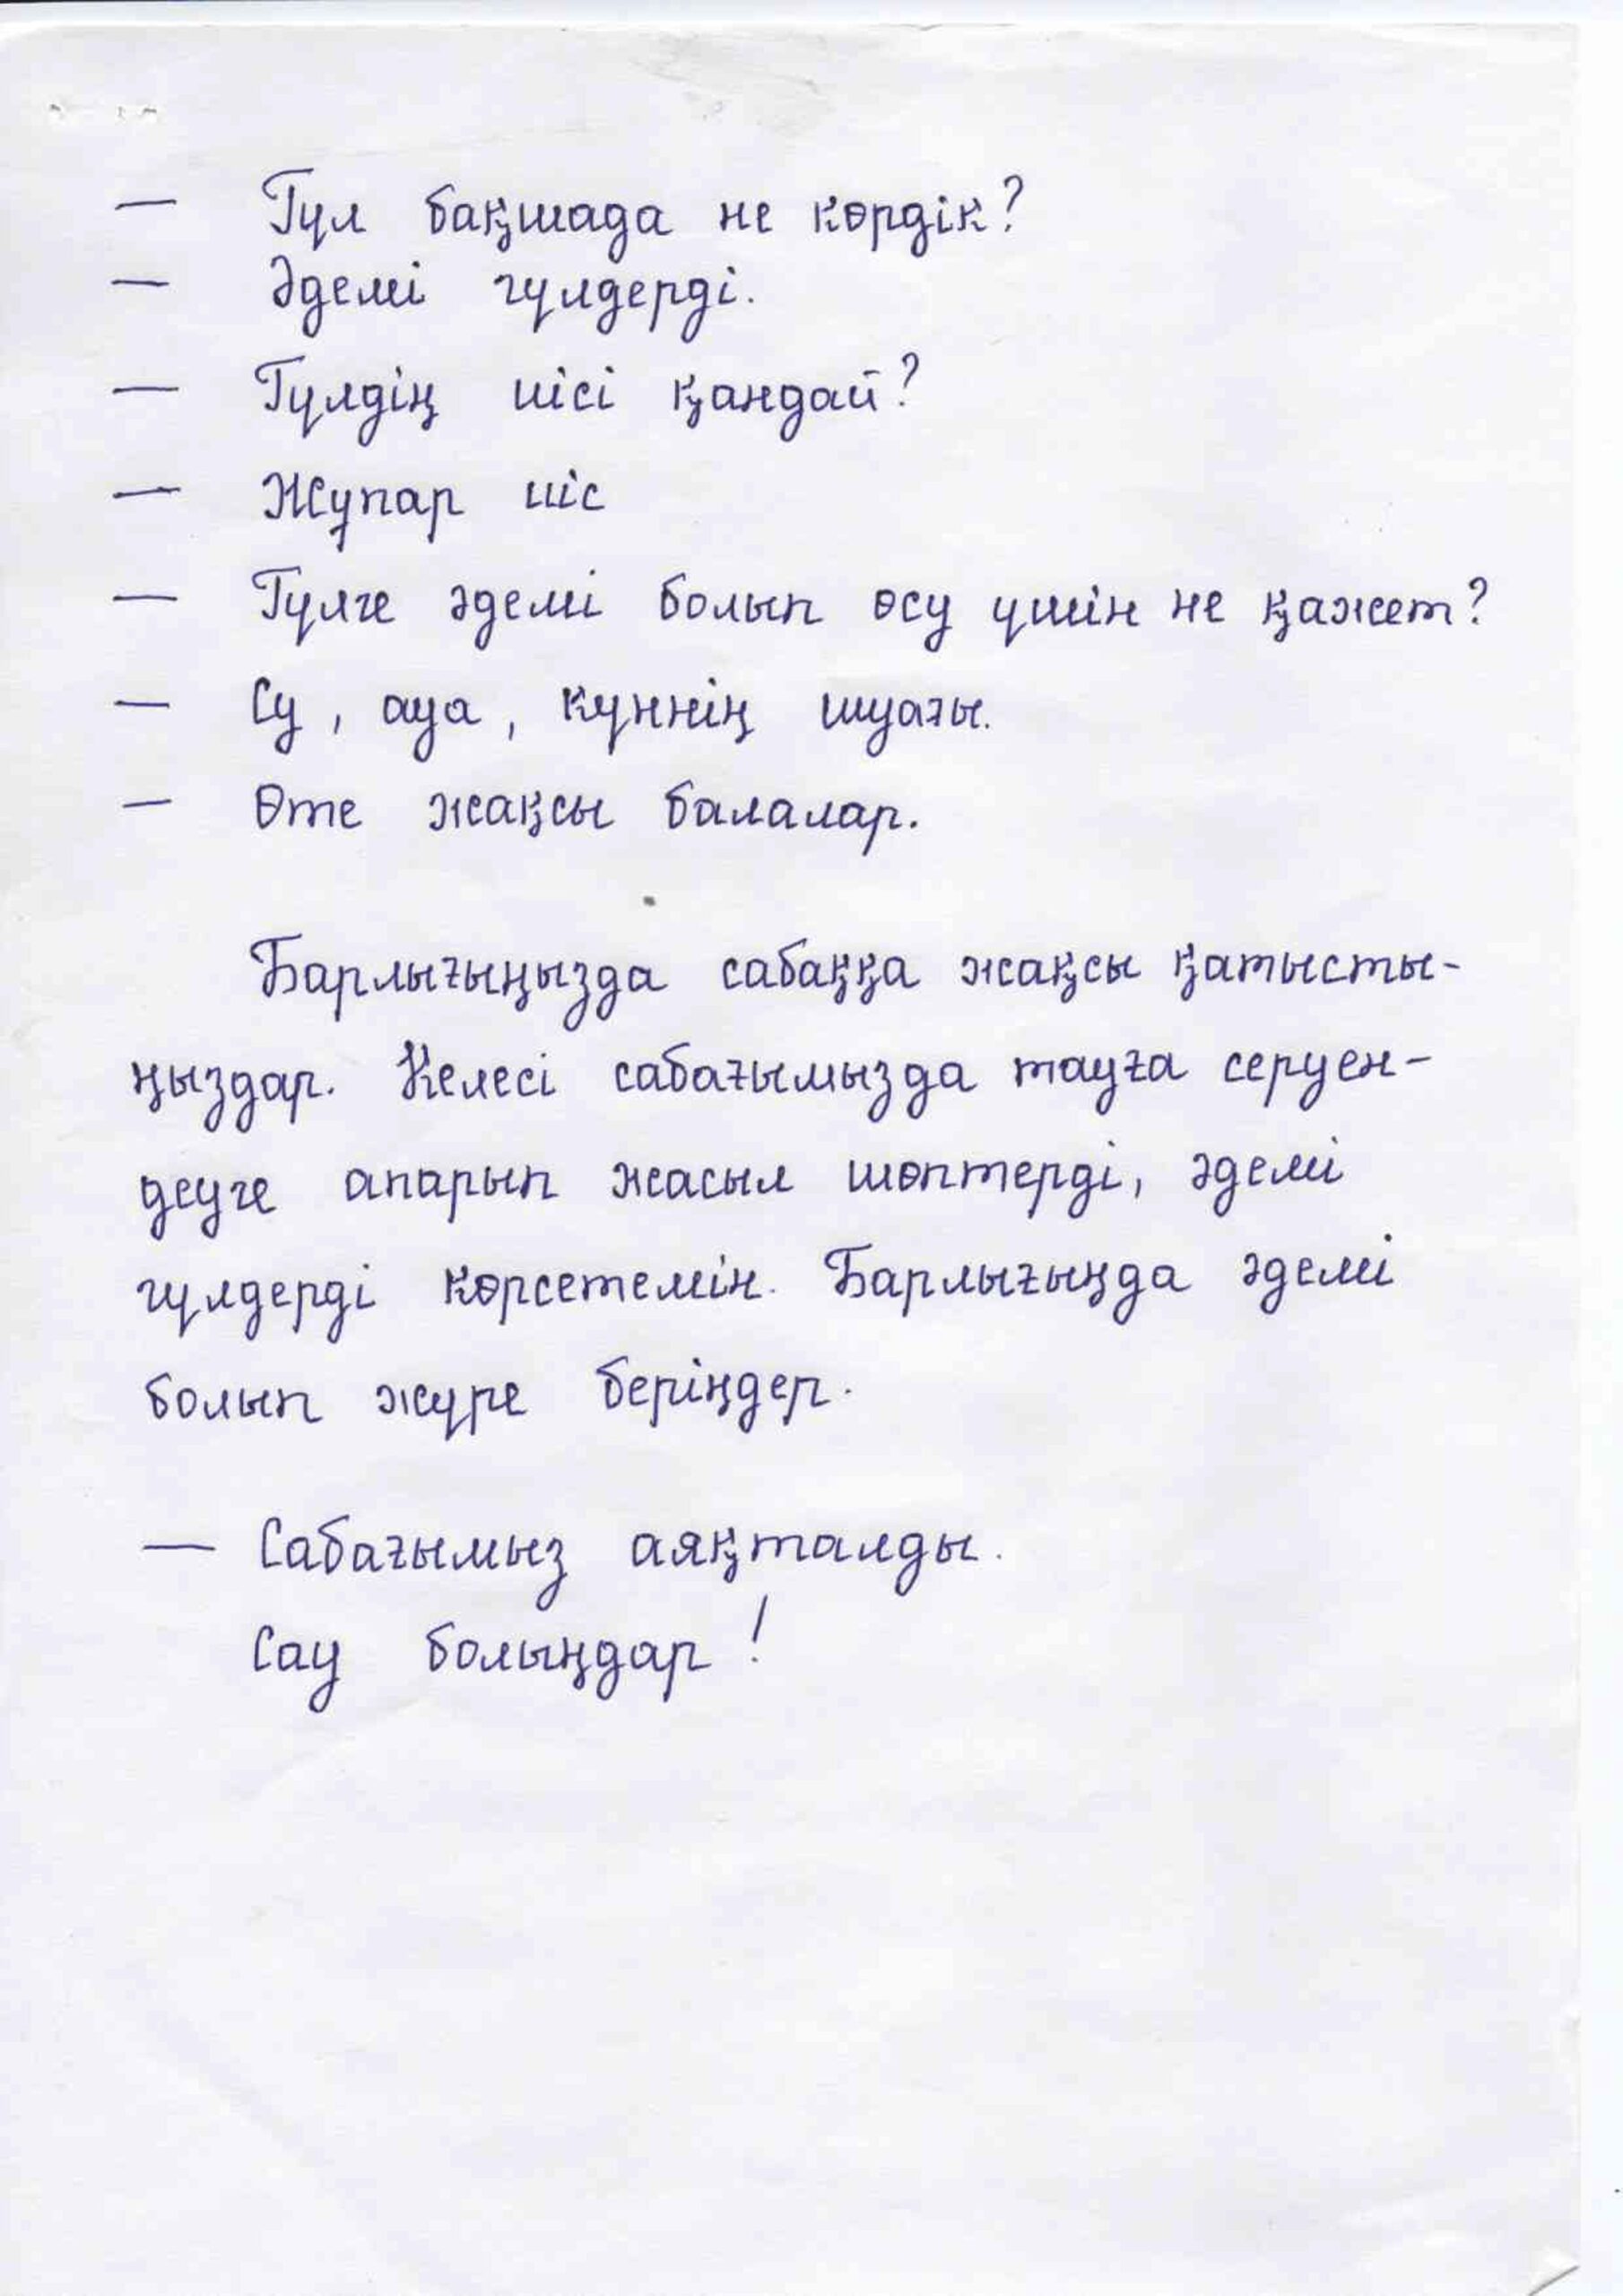 — Гүл бақшада не көрдік?
— Әдемі гүлдерді.
— Гүлдің иісі қандай?
— Жұпар иіс
— Гүлге әдемі болып өсу үшін не қажет?
— Су, ауа, күннің шуағы.
— Өте жақсы балалар.
Барлығыңызда сабаққа жақсы қатысты-
ңыздар. Келесі сабағымызда тауға серуен-
деуге апарып жасыл шөптерді, әдемі
гүлдерді көрсетемін. Барлығыңда әдемі
болып жүре беріңдер.
— Сабағымыз аяқталды.
Сау болыңдар!